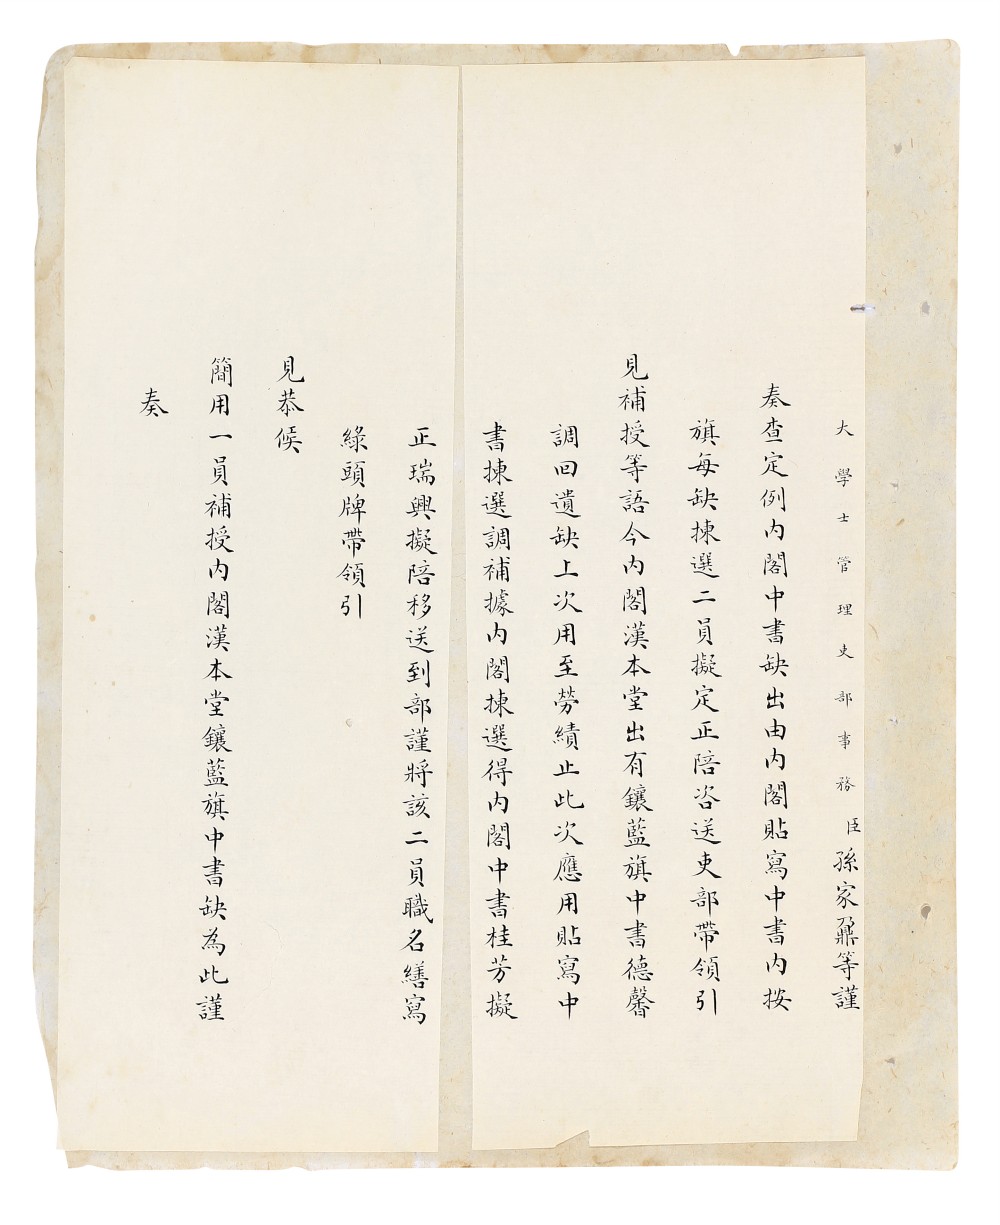 大學士管理吏部事務臣孫家鼐等謹
奏查定例內閣中書缺出由內閣貼寫中書內按
旗每缺揀選二員擬定正陪咨送吏部帶領引
見補授等語今內閣漢本堂出有鑲藍旗中書德馨
調回遺缺上次用至勞績止此次應用貼寫中
書揀選調補據內閣揀選得內閣中書桂芳擬
正瑞興擬陪移送到部謹將該二員職名繕寫
綠頭牌帶領引
見恭候
簡用一員補授內閣漢本堂鑲藍旗中書缺為此謹
奏